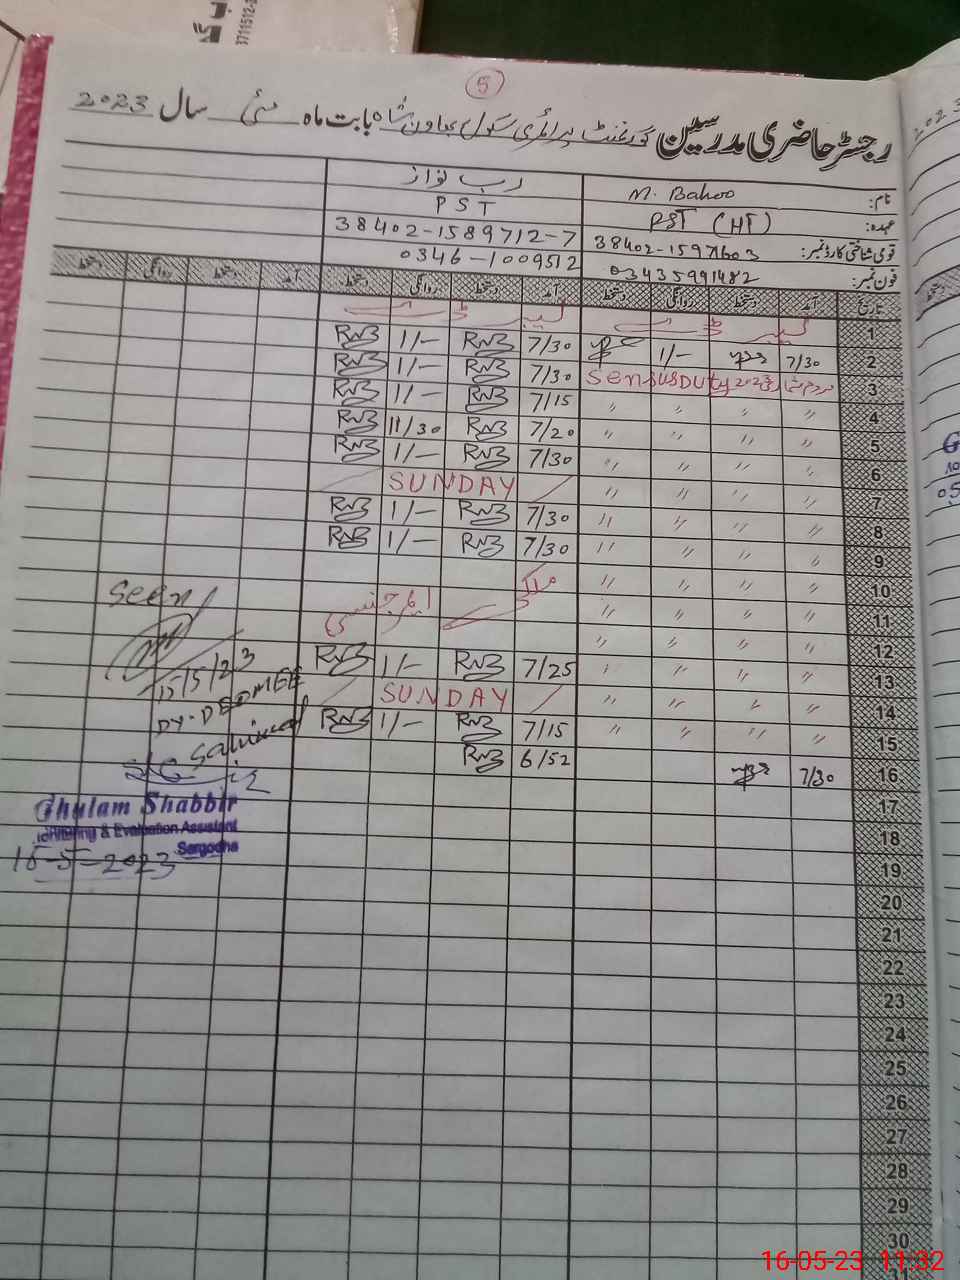 3711512-2
5
رجسٹر حاضری مدرسین گورنمنٹ پرائمری سکول بہاون شاہ بابت ماہ مئی سال 2023
نام: M. Bahoo رب نواز
عہدہ: PST (HT) PST
قومی شناختی کارڈ نمبر: 38402-15971603 38402-1589712-7
فون نمبر: 03435991482 0346-1009512
تاریخ آمد دستخط روانگی دستخط آمد دستخط روانگی دستخط آمد دستخط روانگی دستخط
1 لیبر ڈے لیبر ڈے
2 7/30 1/- 7/30 RNB 1/- RNB
3 مردم شماری Sensus Duty 2023 7/30 RNB 1/- RNB
4 〃 〃 〃 〃 7/15 RNB 1/- RNB
5 〃 〃 〃 〃 7/20 RNB 11/30 RNB
6 〃 〃 〃 〃 7/30 RNB 1/- RNB
7 〃 〃 〃 〃 SUNDAY
8 〃 〃 〃 〃 7/30 RNB 1/- RNB
9 〃 〃 〃 〃 7/30 RNB 1/- RNB
10 〃 〃 〃 〃
11 〃 〃 〃 〃 ایمرجنسی
12 〃 〃 〃 〃
13 〃 〃 〃 〃 7/25 RNB 1/- RNB
14 〃 〃 〃 〃 SUNDAY
15 〃 〃 〃 〃 7/15 RNB 1/- RNB
16 7/30 6/52 RNB
17
18
19
20
21
22
23
24
25
26
27
28
29
30
31
Seen
15/5/23
DY-DEOMEE
Sahiwal
Ghulam Shabbir
Monitoring & Evaluation Assistant
Sargodha
16-5-2023
2023
16-05-23 11:32